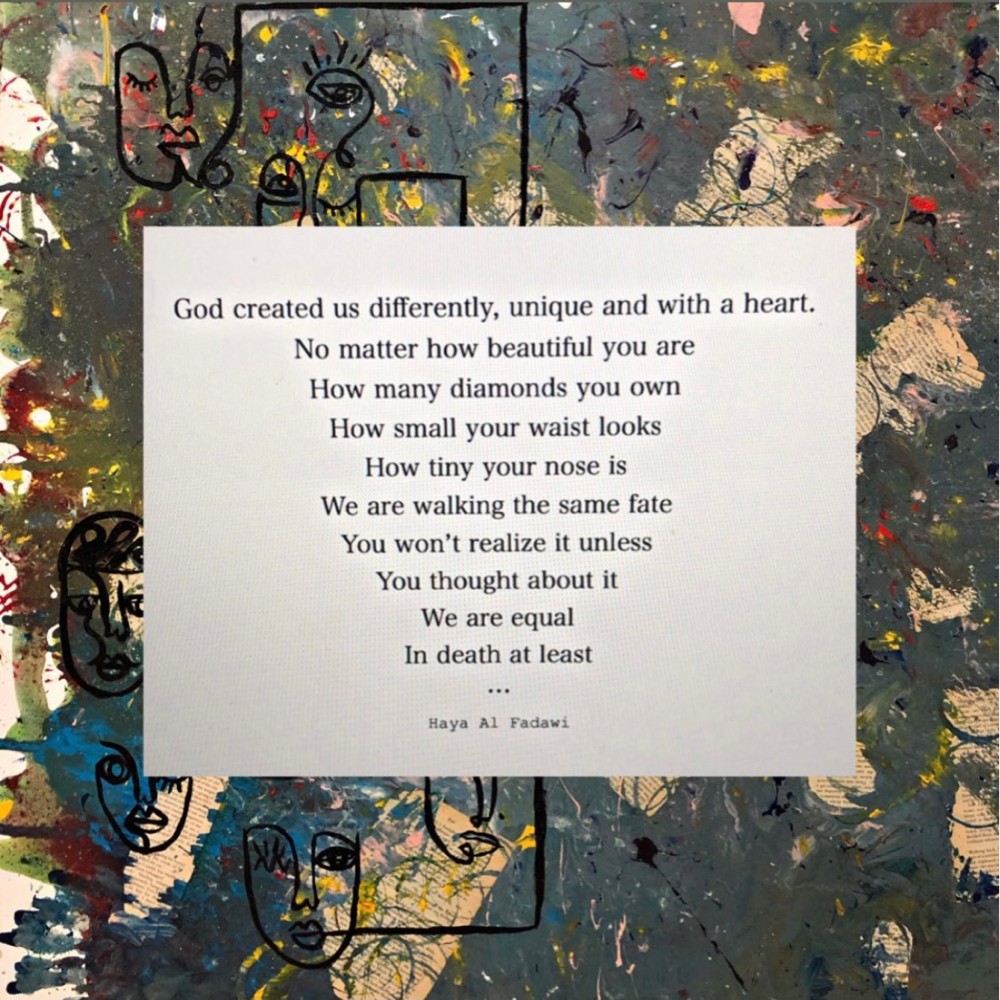 God created us differently, unique and with a heart.
No matter how beautiful you are
How many diamonds you own
How small your waist looks
How tiny your nose is
We are walking the same fate
You won’t realize it unless
You thought about it
We are equal
In death at least
...
Haya Al Fadawi